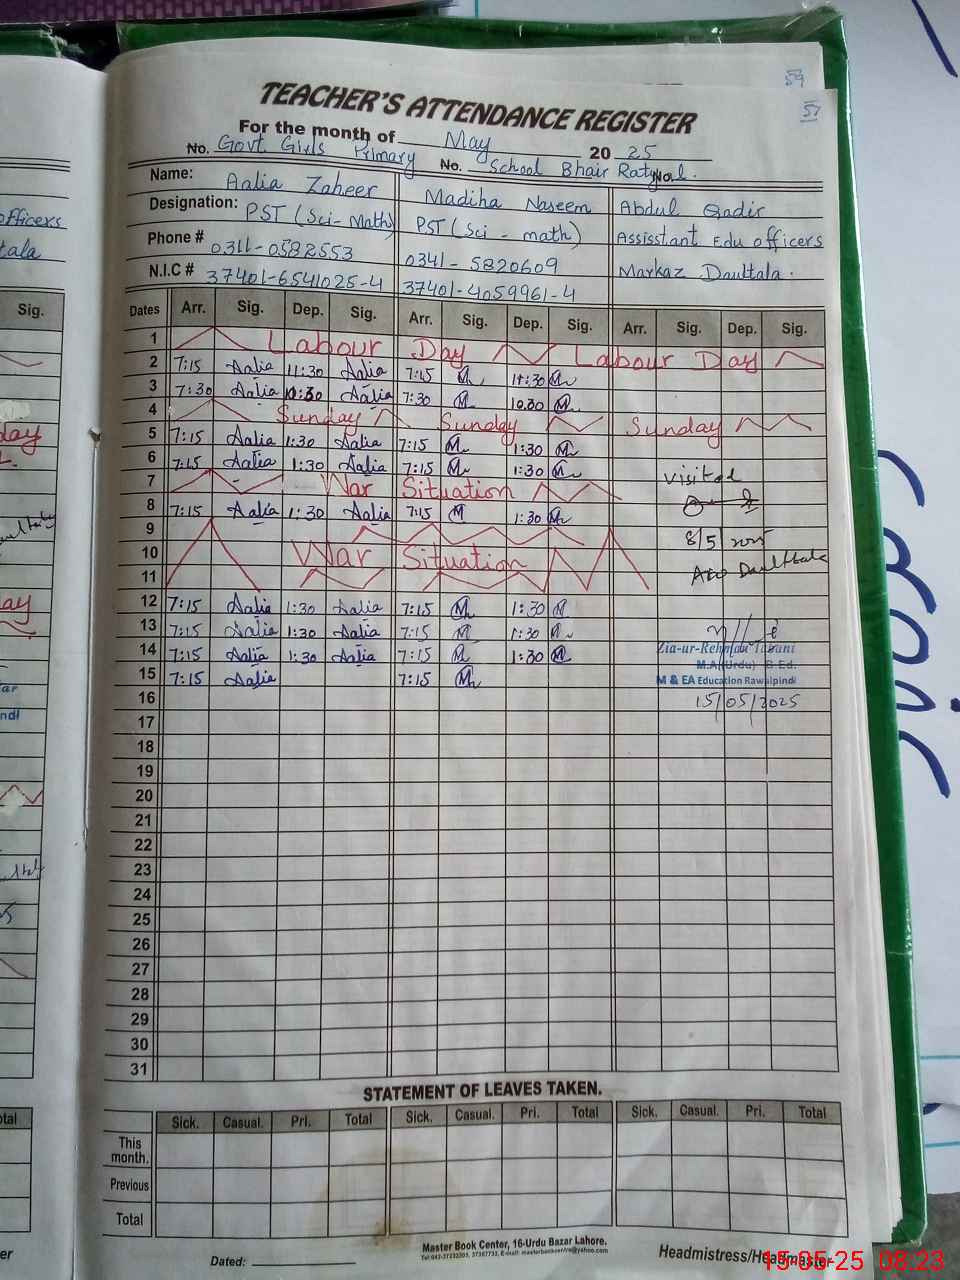 59
57
TEACHER'S ATTENDANCE REGISTER
For the month of May 2025
No. Govt. Girls Primary No. School Bhair Ratyal. No.
Name: Aalia Zaheer Madiha Naseem Abdul Qadir
Designation: PST (Sci-Math) PST (Sci - math) Assisstant Edu officers
Phone # 0311-0582553 0341-5820609 Markaz Daultala.
N.I.C # 37401-6541025-4 37401-4059961-4
Dates Arr. Sig. Dep. Sig. Arr. Sig. Dep. Sig. Arr. Sig. Dep. Sig.
1 Labour Day Labour Day
2 7:15 Aalia 11:30 Aalia 7:15 M 11:30 M
3 7:30 Aalia 10:30 Aalia 7:30 M 10.30 M
4 Sunday Sunday Sunday
5 7:15 Aalia 1:30 Aalia 7:15 M 1:30 M
6 7:15 Aalia 1:30 Aalia 7:15 M 1:30 M visited
7 War Situation
8 7:15 Aalia 1:30 Aalia 7:15 M 1:30 M
9 8/5/2025
10 War Situation AEO Daultala
11
12 7:15 Aalia 1:30 Aalia 7:15 M 1:30 M
13 7:15 Aalia 1:30 Aalia 7:15 M 1:30 M
14 7:15 Aalia 1:30 Aalia 7:15 M 1:30 M Zia-ur-Rehman
M.A (Urdu) B.Ed.
15 7:15 Aalia 7:15 M M & EA Education Rawalpindi
16 15/05/2025
17
18
19
20
21
22
23
24
25
26
27
28
29
30
31
STATEMENT OF LEAVES TAKEN.
Sick. Casual. Pri. Total Sick. Casual. Pri. Total Sick. Casual. Pri. Total
This month.
Previous
Total
Master Book Center, 16-Urdu Bazar Lahore.
Dated:
Headmistress/Headmaster
15-05-25 08:23
officers
tala
Sig.
day
day